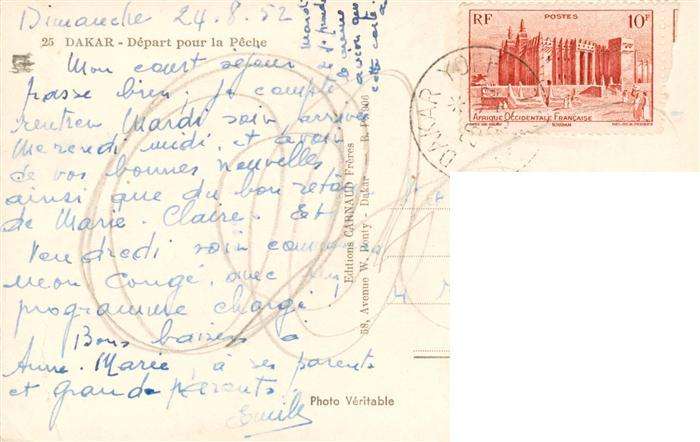 Dimanche 24.8.52
25 DAKAR - Départ pour la Pêche
Mon court séjour
passe bien. Je compte
rentrer Mardi soir arriver
Mercredi midi, et avoir
de vos bonnes nouvelles
ainsi que du bon
de Marie-Claire. Et
Vendredi soir
mon congé, avec
programme chargé.
Bons baisers à
Anne-Marie, à ses parents
et grands parents.
Emile
Mardi
avion que
cette carte
Editions CARNAUD Frères
58, Avenue W. Ponty - Dakar
Photo Véritable
RF
POSTES
10F
AFRIQUE OCCIDENTALE FRANÇAISE
SOUDAN
DAKAR YOFF